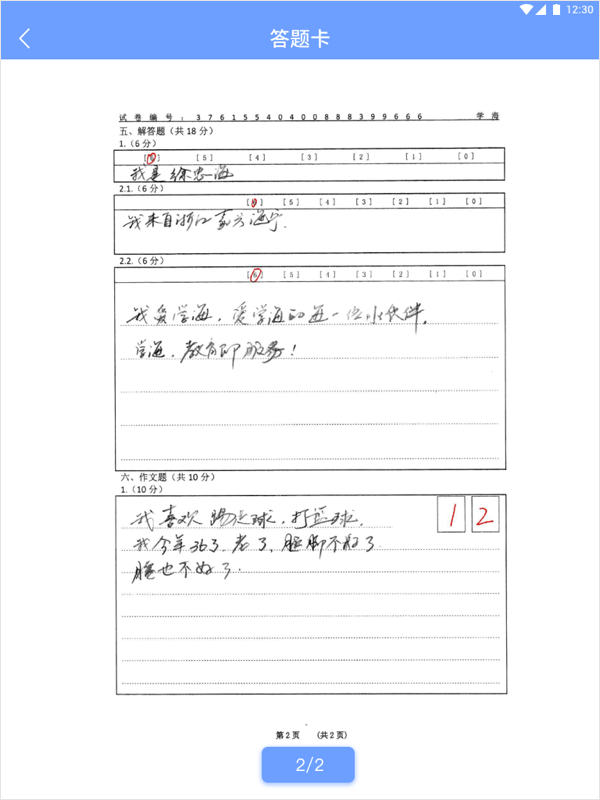 12:30
答题卡
试卷编号：37615540400888399666 学海
五、解答题（共18分）
1.（6分）
[6] [5] [4] [3] [2] [1] [0]
我是徐忠海
2.1.（6分）
[6] [5] [4] [3] [2] [1] [0]
我来自浙江嘉兴海宁.
2.2.（6分）
[6] [5] [4] [3] [2] [1] [0]
我爱学海，爱学海的每一位小伙伴，
学海，教育即服务！
六、作文题（共10分）
1.（10分）
1 2
我喜欢踢足球，打篮球.
我今年36了，老了，腿脚不好了
腰也不好了.
第2页 （共2页）
2/2